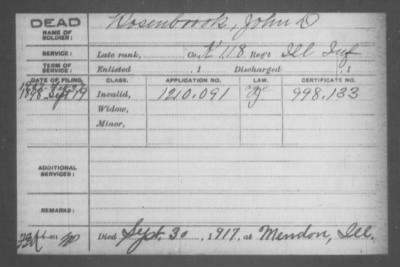 DEAD
NAME OF SOLDIER: Rosenbrook, John D
SERVICE: Late rank, Co. K 118 Reg't Ill Inf
TERM OF SERVICE: Enlisted , 1 Discharged , 1
DATE OF FILING. CLASS. APPLICATION NO. LAW. CERTIFICATE NO.
1898 Sept 19 Invalid, 1210.091 "G" 998.133
Widow,
Minor,
ADDITIONAL SERVICES:
REMARKS:
Died Sept. 30, 1917, at Mendon, Ill.